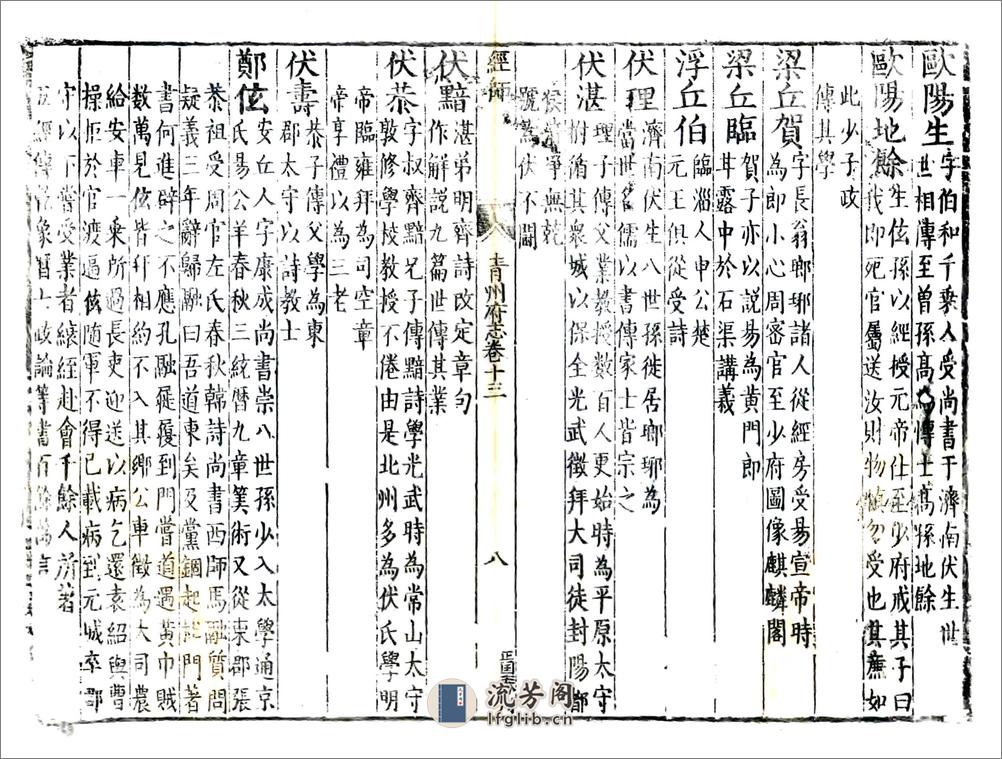 歐陽生字伯和千乘人受尚書于濟南伏生世
世相傳至曾孫高為博士高孫地餘
歐陽地餘生伭孫以經授元帝仕至少府戒其子曰
我即死官屬送汝財物慎勿受也其廉如
此少子政
傳其學
梁丘賀字長翁瑯琊諸人從經房受易宣帝時
為郎小心周密官至少府圖像麒麟閣
梁丘臨賀子亦以說易為黃門郎
甘露中於石渠講義
浮丘伯臨淄人申公楚
元王俱從受詩
伏理濟南伏生八世孫徙居瑯琊為
當世名儒以書傳家士皆宗之
伏湛理子傳父業教授數百人更始時為平原太守
拊循其衆城以保全光武徵拜大司徒封陽都
侯
號為伏不鬭
伏黯湛弟明齊詩改定章句
作解說九篇世傳其業
伏恭字叔齊黯兄子傳黯詩學光武時為常山太守
敦修學校教授不倦由是北州多為伏氏學明
帝臨雍拜為司空章
帝享禮以為三老
伏壽恭子傳父學為東
郡太守以詩教士
鄭伭安丘人字康成尚書崇八世孫少入太學通京
氏易公羊春秋三統曆九章筭術又從東郡張
恭祖受周官左氏春秋韓詩尚書西師馬融質問
疑義三年辭歸融曰吾道東矣及黨錮起杜門著
書何進辟之不應孔融屣履到門嘗道遇黃巾賊
數萬見伭皆拜相約不入其鄉公車徵為大司農
給安車一乘所過長吏迎送以病乞還袁紹與曹
操拒於官渡逼伭隨軍不得已載病到元城卒郡
守以下嘗受業者縗絰赴會千餘人所著
五經傳
經師
青州府志卷十三
八
流芳阁
lfglib.cn